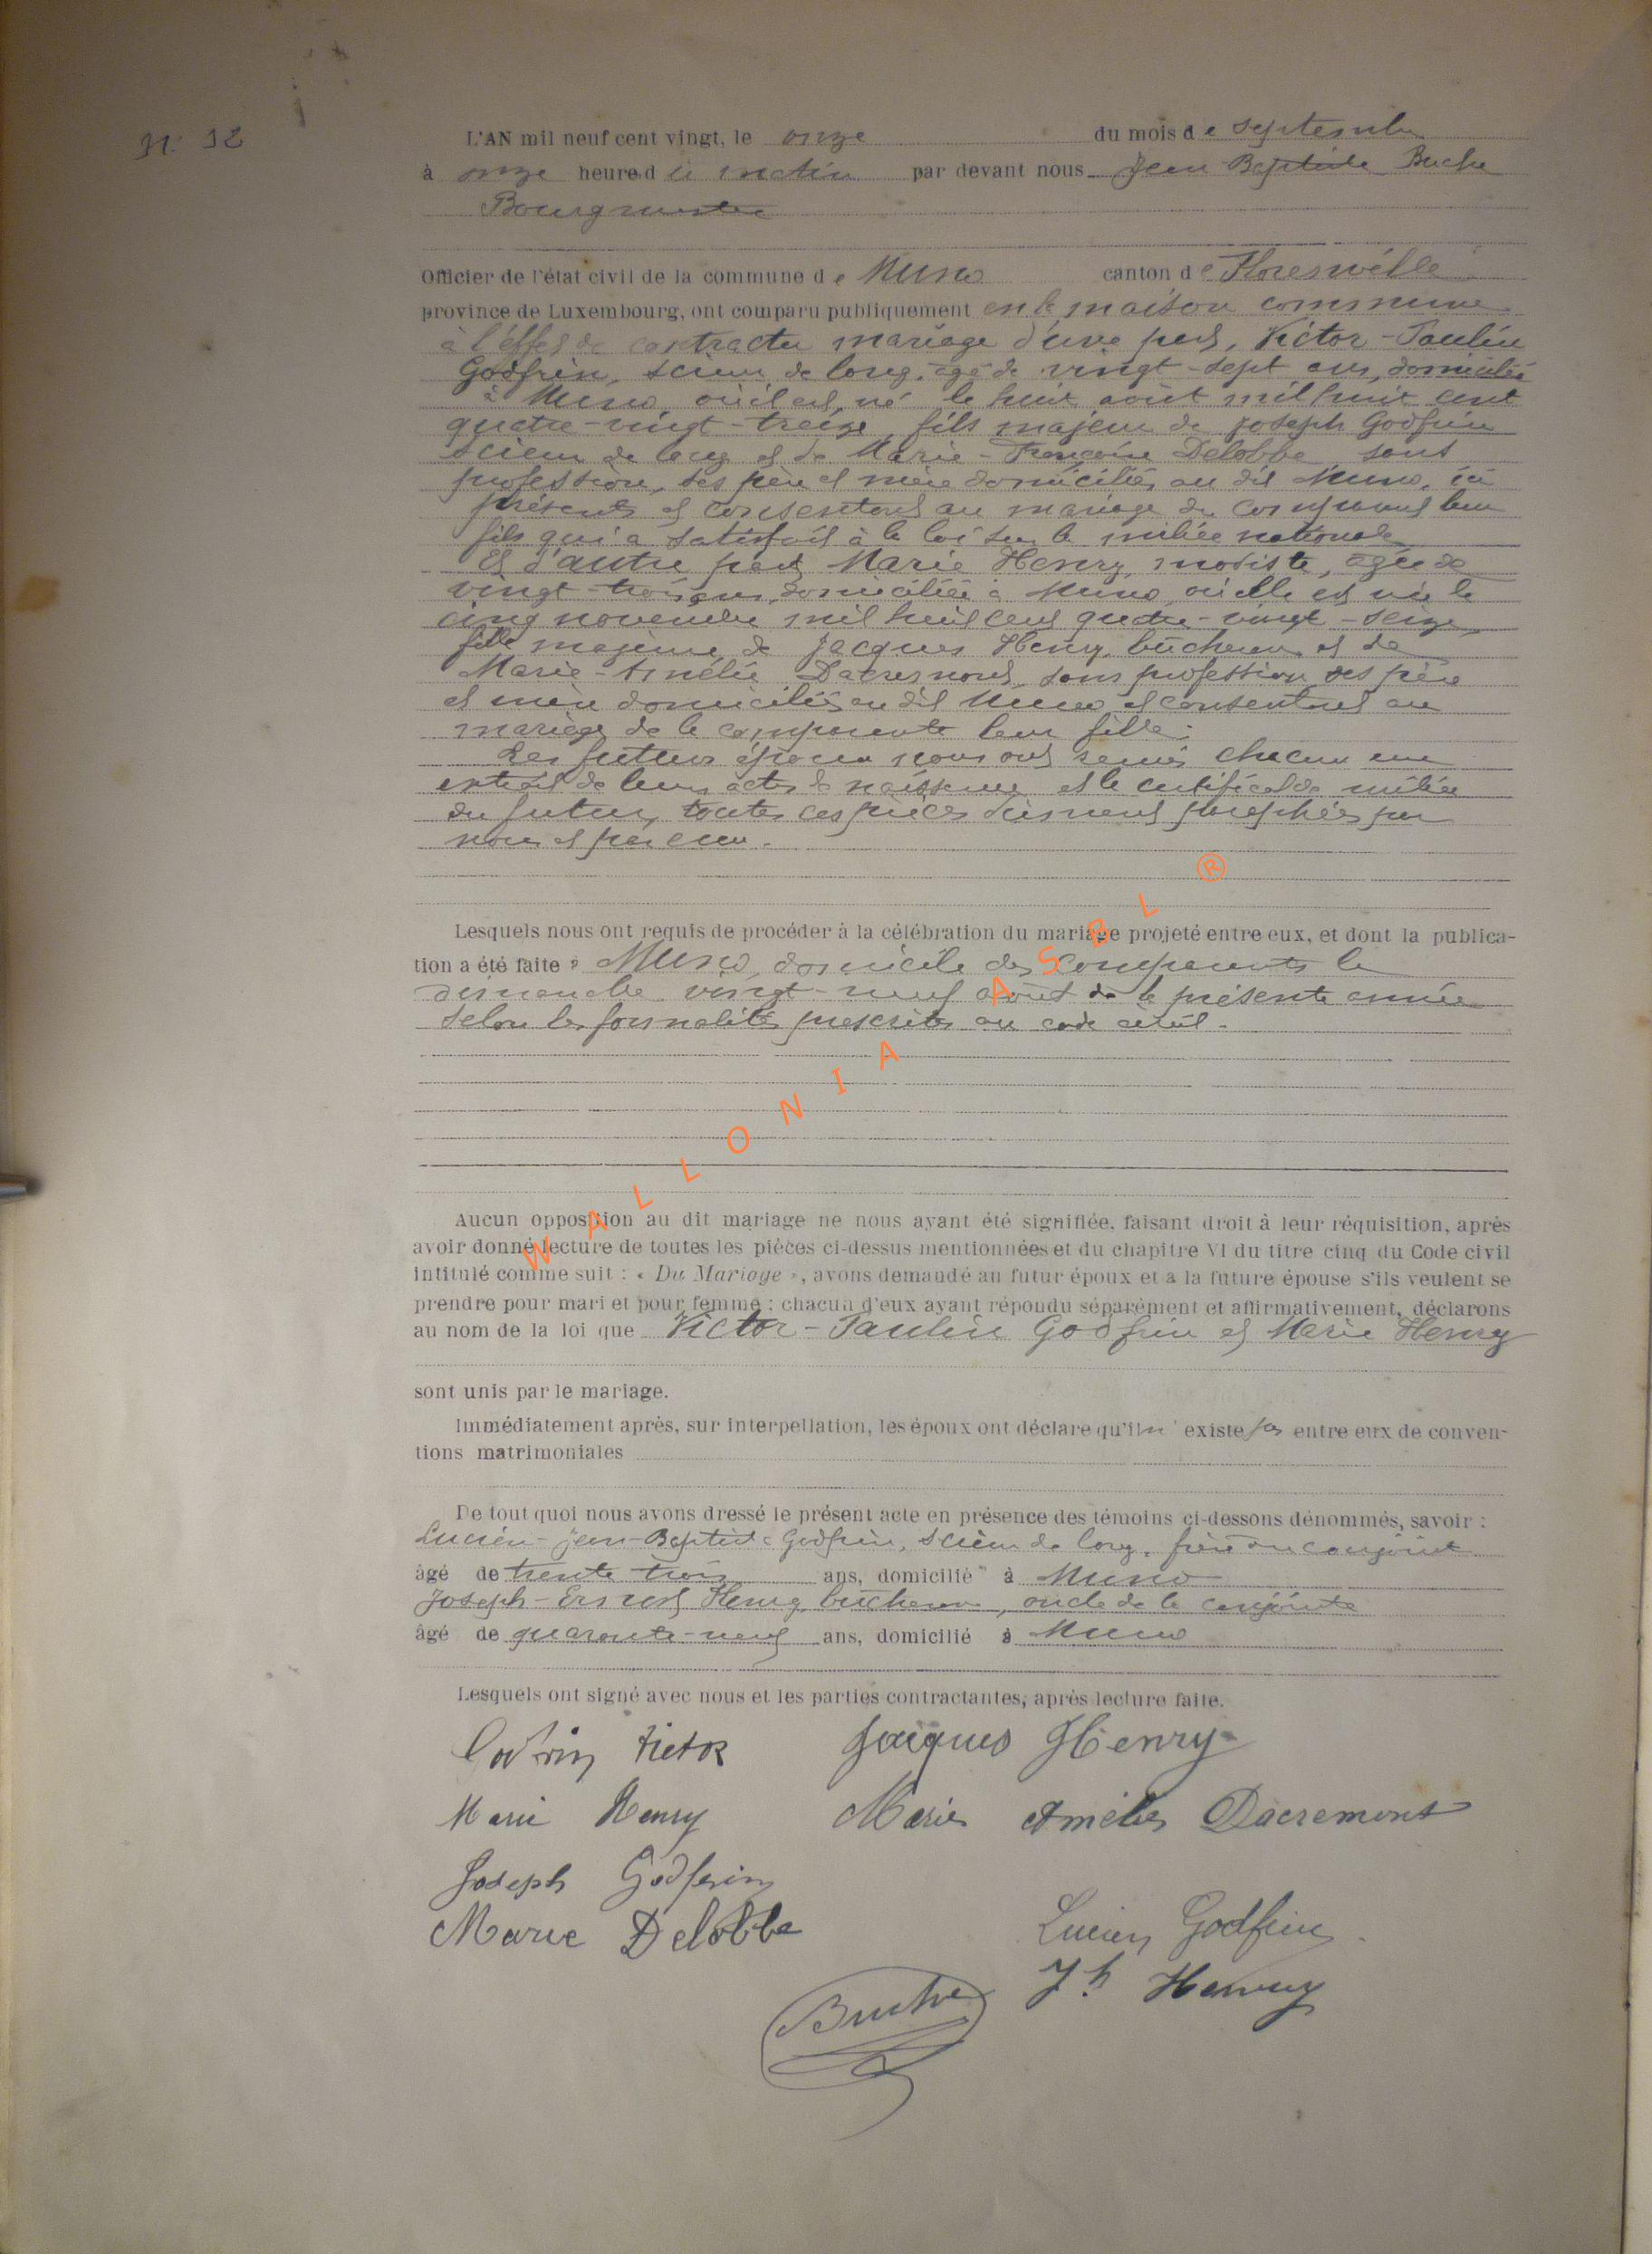 N° 12
L'AN mil neuf cent vingt, le onze du mois de septembre
à onze heures du matin par devant nous Jean Baptiste Buche
Bourgmestre
Officier de l'état civil de la commune de Muno canton de Florenville
province de Luxembourg, ont comparu publiquement en la maison commune
à l'effet de contracter mariage d'une part, Victor-Paulin
Godfrin, scieur de long, âgé de vingt-sept ans, domicilié
à Muno où il est né le huit août mil huit cent
quatre-vingt-treize, fils majeur de Joseph Godfrin
scieur de long et de Marie-Françoise Delobbe sans
profession, ses père et mère domiciliés au dit Muno, ici
présents et consentant au mariage du comparant leur
fils qui a satisfait à la loi sur la milice nationale
Et d'autre part Marie Henry, modiste, âgée de
vingt-trois ans, domiciliée à Muno où elle est née le
cinq novembre mil huit cent quatre-vingt-seize,
fille majeure de Jacques Henry, bûcheron et de
Marie-Amélie Dacremont, sans profession ses père
et mère domiciliés au dit Muno et consentant au
mariage de la comparante leur fille.
Les futurs époux nous ont remis chacun un
extrait de leurs actes de naissance et le certificat de milice
du futur, toutes ces pièces dûment paraphées par
nous et par eux.
Lesquels nous ont requis de procéder à la célébration du mariage projeté entre eux, et dont la publica-
tion a été faite à Muno, domicile des comparants le
dimanche vingt-neuf août de la présente année
selon les formalités prescrites au code civil.
Aucun opposition au dit mariage ne nous ayant été signifiée, faisant droit à leur réquisition, après
avoir donné lecture de toutes les pièces ci-dessus mentionnées et du chapitre VI du titre cinq du Code civil
intitulé comme suit : « Du Mariage », avons demandé au futur époux et a la future épouse s'ils veulent se
prendre pour mari et pour femme ; chacun d'eux ayant répondu séparément et affirmativement, déclarons
au nom de la loi que Victor-Paulin Godfrin et Marie Henry
sont unis par le mariage.
Immédiatement après, sur interpellation, les époux ont déclare qu'il n'existe pas entre eux de conven-
tions matrimoniales
De tout quoi nous avons dressé le présent acte en présence des témoins ci-dessons dénommés, savoir :
Lucien-Jean-Baptiste Godfrin, scieur de long, frère du conjoint
âgé de trente trois ans, domicilié à Muno
Joseph-Ernest Henry bûcheron, oncle de la conjointe
âgé de quarante-neuf ans, domicilié à Muno
Lesquels ont signé avec nous et les parties contractantes, après lecture faite.
Godfrin Victor Jacques Henry
Marie Henry Marie Amélie Dacremont
Joseph Godfrin
Marie Delobbe Lucien Godfrin
Jh Henry
Buche
WALLONIA ASBL ®